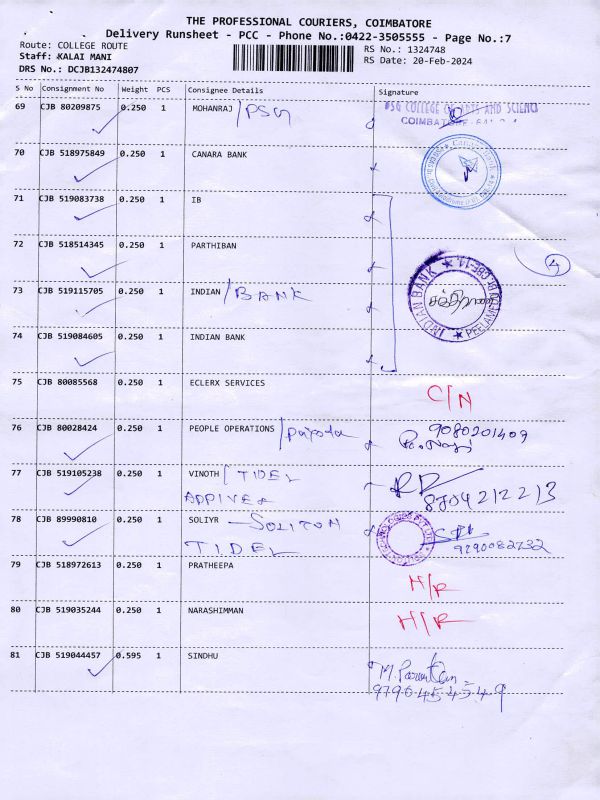 THE PROFESSIONAL COURIERS, COIMBATORE
Delivery Runsheet - PCC - Phone No.:0422-3505555 - Page No.:7
Route: COLLEGE ROUTE
RS No.: 1324748
Staff: KALAI MANI
RS Date: 20-Feb-2024
DRS No.: DCJB132474807
S No Consignment No Weight PCS Consignee Details Signature
69 CJB 80209875 0.250 1 MOHANRAJ / PSG
PSG COLLEGE OF ARTS AND SCIENCE
COIMBATORE
70 CJB 518975849 0.250 1 CANARA BANK
71 CJB 519083738 0.250 1 IB
72 CJB 518514345 0.250 1 PARTHIBAN
4
INDIAN BANK
73 CJB 519115705 0.250 1 INDIAN / BANK
74 CJB 519084605 0.250 1 INDIAN BANK
75 CJB 80085568 0.250 1 ECLERX SERVICES C/N
76 CJB 80028424 0.250 1 PEOPLE OPERATIONS / 9080201409
77 CJB 519105238 0.250 1 VINOTH / TIDEL
8704212213
78 CJB 89990810 0.250 1 SOLIYR - SOLITON
TIDEL
9790082732
79 CJB 518972613 0.250 1 PRATHEEPA H/R
80 CJB 519035244 0.250 1 NARASHIMMAN H/R
81 CJB 519044457 0.595 1 SINDHU
9790454549